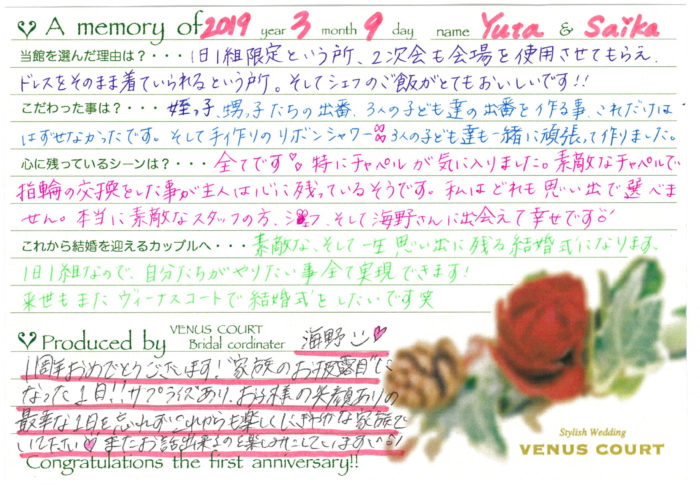 A memory of 2019 year 3 month 9 day name Yuta & Saika
当館を選んだ理由は？・・・1日1組限定という所、2次会も会場を使用させてもらえ、
ドレスをそのまま着ていられるという所。そしてシェフのご飯がとてもおいしいです!!
こだわった事は？・・・姪っ子、甥っ子たちの出番、3人の子ども達の出番を作る事、これだけは
はずせなかったです。そして手作りのリボンシャワー 3人の子ども達も一緒に頑張って作りました。
心に残っているシーンは？・・・全てです♡ 特にチャペルが気に入りました。素敵なチャペルで
指輪の交換をした事が主人は心に残っているそうです。私はどれも思い出で選べま
せん。本当に素敵なスタッフの方、シェフ、そして海野さんに出会えて幸せです♡
これから結婚を迎えるカップルへ・・・素敵な、そして一生思い出に残る結婚式になります。
1日1組なので、自分たちがやりたい事全て実現できます!
来世もまたヴィーナスコートで結婚式をしたいです笑
Produced by VENUS COURT Bridal cordinater 海野
1周年おめでとうございます！"家族のお披露目"に
なった1日!!サプライズあり、お子様の笑顔ありの
最幸な1日を忘れずに これからも楽しくにぎやかな家族で
いて下さい♡またお話出来るのを楽しみにしています
Congratulations the first anniversary!!
Stylish Wedding
VENUS COURT